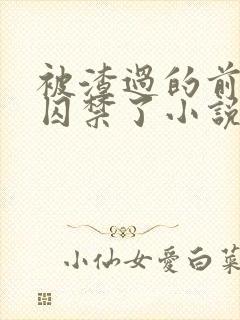 被渣過的前
囚禁了小說
小仙女愛白菜